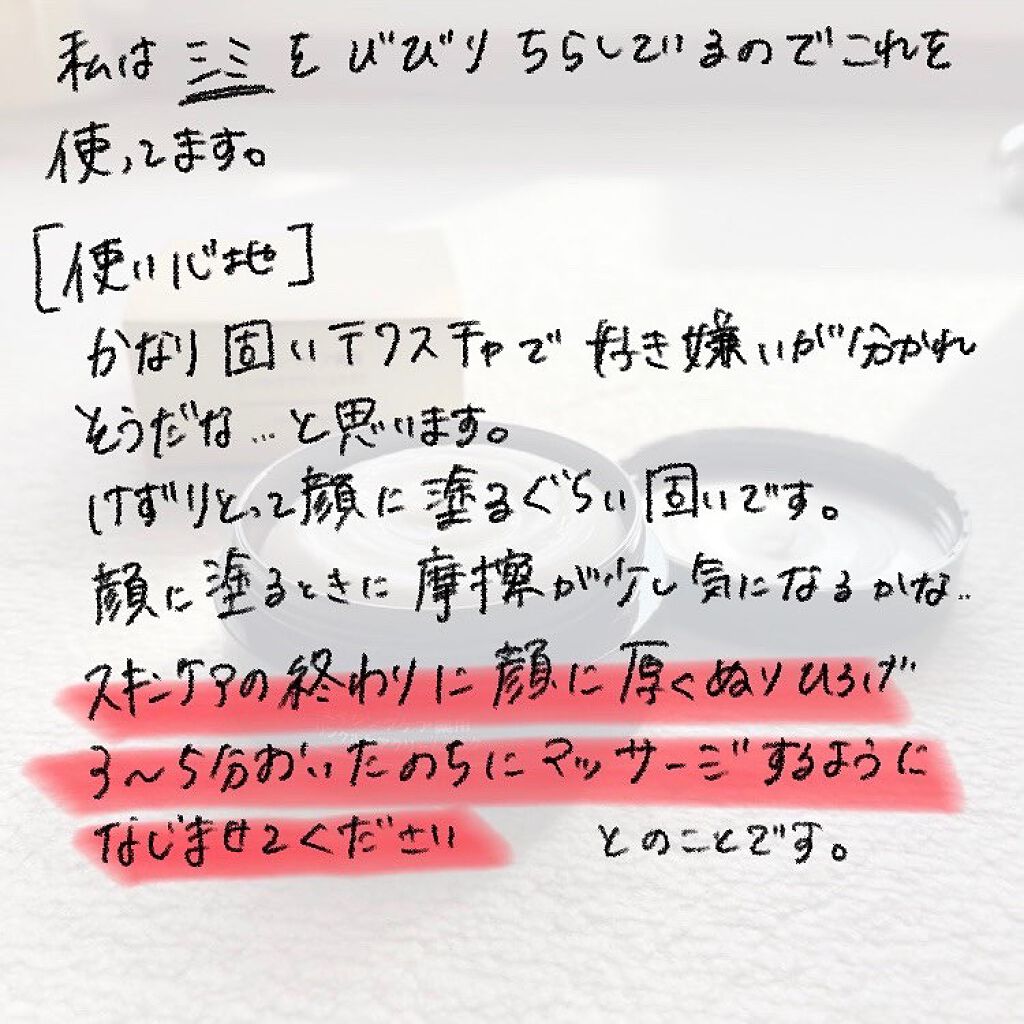 私はシミをびびりちらしているのでこれを
使ってます。
[使い心地]
かなり固いテクスチャで好き嫌いが分かれ
そうだな…と思います。
けずりとって顔に塗るぐらい固いです。
顔に塗るときに摩擦が少し気になるかな..
スキンケアの終わりに顔に厚くぬりひろげ
3〜5分おいたのちにマッサージするように
なじませてください とのことです。